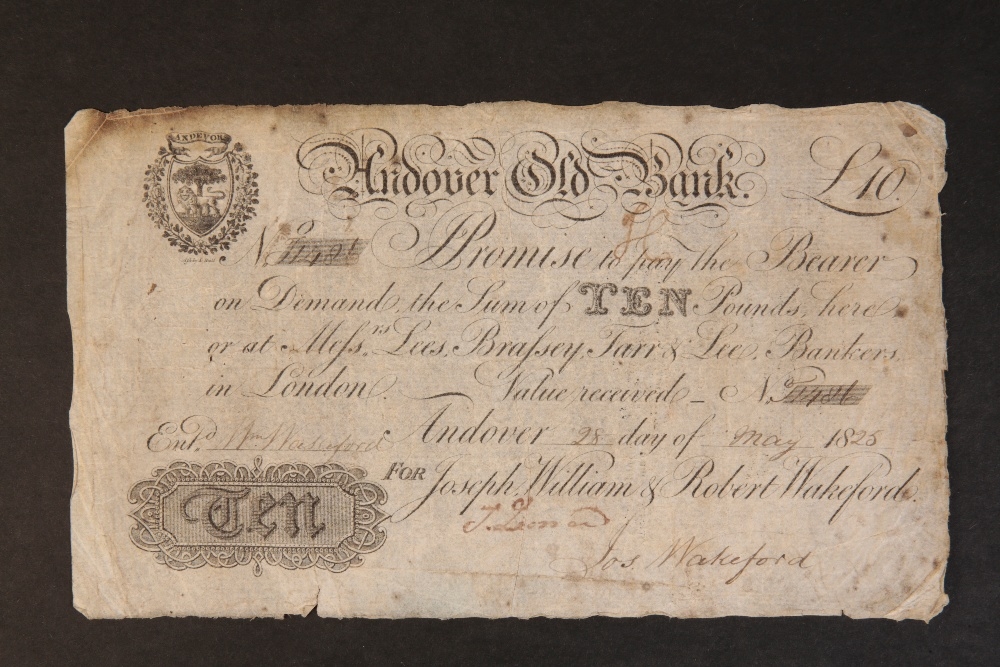 ANDEVOR
Andover Old Bank. £10.
No I Promise to pay the Bearer
on Demand the Sum of TEN Pounds, here
or at Messrs. Lees, Brassey, Farr & Lee, Bankers,
in London. Value received - No
Entd. Wm Wakeford Andover 28 day of May 1825
For Joseph, William & Robert Wakeford.
Ten
Jos. Wakeford